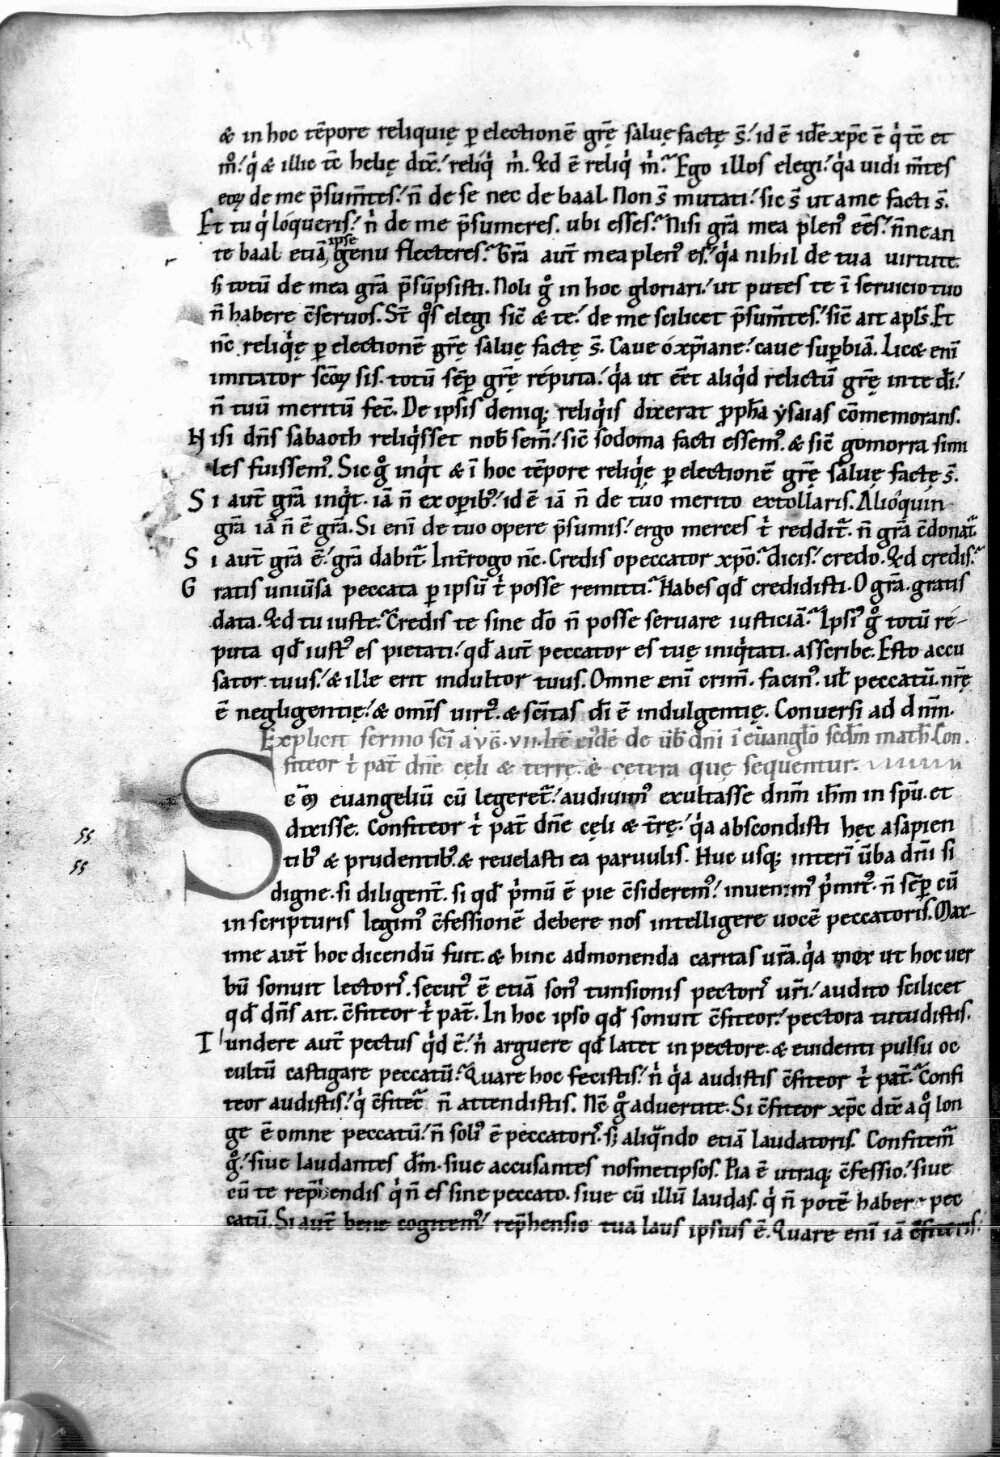 & in hoc tēpore reliquię ꝑ electionē grę̄ saluę factę s̄. id ē idē xp̄c ē q̇ tc̄ et
m̊. q̇ & illic tc̄ helię dix̄. reliq̇ m̄. Qd ē reliq̇ m̄. Ego illos elegi. q̇a uidi m̄tes
eoꝝ de me p̄sum̄tes. n̄ de se nec de baal. Non s̄ mutati. sic s̄ ut a me facti s̄.
Et tu q̇ loqueris. n̄ de me p̄sumeres. ubi esses. Nisi gr̄a mea plen᷒ ees̄. n̄ne an
te baal etiā ipse genu flecteres. Gr̄a aut̄ mea plen᷒ es. q̇a nihil de tua uirtute.
s; totū de mea gr̄a p̄sūpsisti. Noli g̊ in hoc gloriari. ut putes te ī seruicio tuo
n̄ habere c̄seruos. St̄ q̊s elegi sic̄ & te. de me scilicet p̄sum̄tes. sic̄ ait apl̄s. Et
nc̄ reliq̇ę ꝑ electionē grę̄ saluę factę s̄. Caue o xp̄iane. caue suꝑbiā. Lic& enī
imitator sc̄oꝝ sis. totū sēꝑ grę̄ reputa. q̇a ut eēt aliq̇d relictū grę̄ in te dī.
n̄ tuū meritū fec̄. De ipsis deniq; reliq̇is dixerat ꝓph̄a ysaias cōmemorans.
Nisi dn̄s sabaoth reliq̇sset nob̄ sem̄. sic̄ sodoma facti essem᷒. & sic̄ gomorra simi
les fuissem᷒. Sic g̊ inq̇t & ī hoc tēpore reliq̇ę ꝑ electionē grę̄ saluę factę s̄.
Si aut̄ gr̄a inq̇t. iā n̄ ex oꝑib᷒. id ē iā n̄ de tuo merito extollaris. Alioquin
gr̄a iā n̄ ē gr̄a. Si enī de tuo opere p̄sumis. ergo merces t̄ reddit̄. n̄ gr̄a c̄donat̄.
Si aut̄ gr̄a ē. gr̄a dabit̄. Int̄rogo nc̄. Credis o peccator xp̄o. dicis. credo. Qd credis.
Gratis uniūsa peccata ꝑ ipsū t̄ posse remitti. Habes qd̄ credidisti. O gr̄a. gratis
data. Qd tu iuste. Credis te sine dō n̄ posse seruare iusticiā. Ipsi᷒ g̊ totū re-
puta qd̄ iust᷒ es pietati. qd̄ aut̄ peccator es tuę iniq̇tati. asscribe. Esto accu
sator tuus. & ille erit indultor tuus. Omne enī crim̄. facin᷒. ul̄ peccatū. nr̄ę
ē negligentię. & om̄is uirt᷒. & sc̄itas dī ē indulgentię. Conuersi ad dnm̄.
Explicit sermo sc̄i aug̅. vii. Itē eidē de ūb̄ dn̄i ī euanglō scdm̄ math̄. Con.
fiteor t̄ pat̄ dn̄e cęli & terrę. & cetera que sequentur.
S
cm̄ euangeliū cū legeret̄. audiuim᷒ exultasse dn̄m ih̄m in sp̄u. et
dixisse. Confiteor t̄ pat̄ dn̄e cęli & t̄rę. q̇a abscondisti hęc a sapien
tib᷒ & prudentib᷒. & reuelasti ea paruulis. Huc usq; interī ūba dn̄i si
digne. si diligent̄. si qd̄ ṗmū ē pie c̄siderem᷒. inuenim᷒ ṗmit᷒. n̄ sēꝑ cū
in scripturis legim᷒ c̄fessionē debere nos intelligere uocē peccatoris. Max-
ime aut̄ hoc dicendū fuit. & hinc admonenda caritas ur̄a. q̇a mox ut hoc uer
bū sonuit lectori᷒. secut᷒ ē etiā son᷒ tunsionis pectori᷒ ur̄i. audito scilicet
qd̄ dn̄s ait. c̄fiteor t̄ pat̄. In hoc ipso qd̄ sonuit c̄fiteor. pectora tutudistis.
Tundere aut̄ pectus q̇d ē. n̄ arguere qd̄ latet in pectore. & euidenti pulsu oc
cultū castigare peccatū. Quare hoc fecistis. n̄ q̇a audistis c̄fiteor t̄ pat̄. Confi
teor audistis. q̇ c̄fitet̄ n̄ attendistis. Nc̄ g̊ aduertite. Si c̄fiteor xp̄c dix̄ a q̊ lon
ge ē omne peccatū. n̄ soli᷒ ē peccatori᷒. s; aliq̇ndo etiā laudatoris. Confitem̄
g̊. siue laudantes dm̄. siue accusantes nosmetipsos. Pia ē utraq; c̄fessio. siue
cū te rep̄hendis q̇ n̄ es sine peccato. siue cū illū laudas. q̇ n̄ potē haber pec
catū. Si aut̄ bene cogitem᷒. rep̄hensio tua laus ipsius ē. Quare enī iā c̄fiteris.
ss
ss